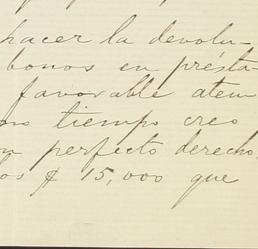 hacer la devolu-
bonos en présta-
favorable aten
mo tiempo creo
n perfecto derecho,
os $ 15,000 que